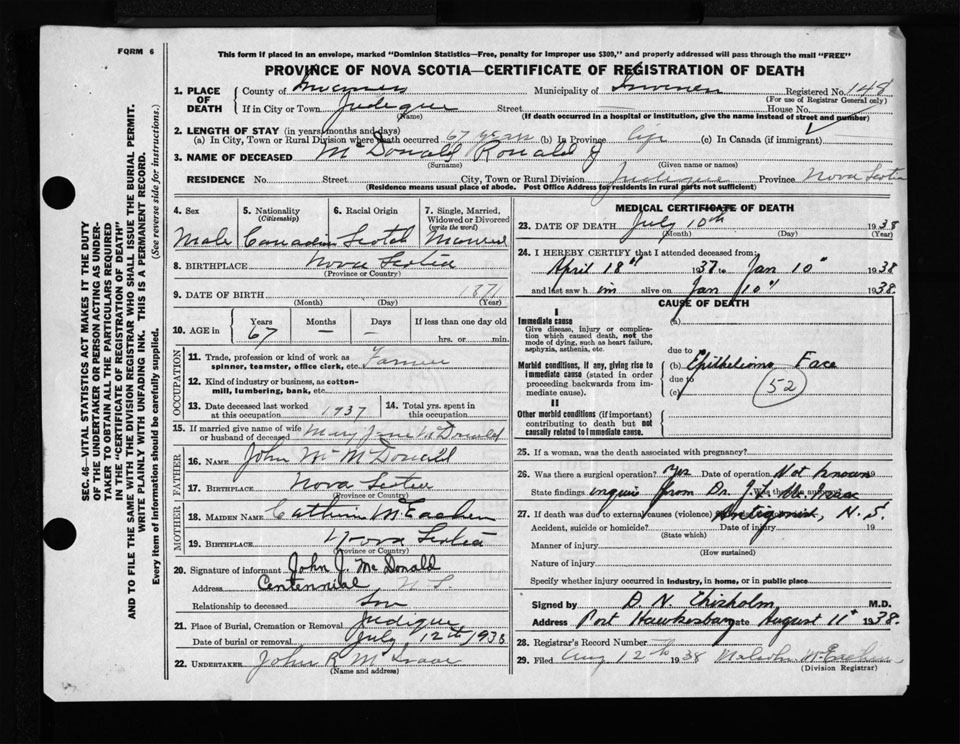 FORM 6
This form if placed in an envelope, marked "Dominion Statistics—Free, penalty for improper use $300," and properly addressed will pass through the mail "FREE"
PROVINCE OF NOVA SCOTIA—CERTIFICATE OF REGISTRATION OF DEATH
SEC. 46—VITAL STATISTICS ACT MAKES IT THE DUTY
OF THE UNDERTAKER OR PERSON ACTING AS UNDER-
TAKER TO OBTAIN ALL THE PARTICULARS REQUIRED
IN THE "CERTIFICATE OF REGISTRATION OF DEATH"
AND TO FILE THE SAME WITH THE DIVISION REGISTRAR WHO SHALL ISSUE THE BURIAL PERMIT.
WRITE PLAINLY WITH UNFADING INK. THIS IS A PERMANENT RECORD.
Every item of information should be carefully supplied. (See reverse side for instructions.)
1. PLACE OF DEATH County of Inverness Municipality of Inverness Registered No. 148
(For use of Registrar General only)
If in City or Town Judique Street House No.
(Name) (If death occurred in a hospital or institution, give the name instead of street and number)
2. LENGTH OF STAY (in years, months and days)
(a) In City, Town or Rural Division where death occurred 67 years (b) In Province Life (c) In Canada (if immigrant)
3. NAME OF DECEASED McDonald Ronald J
(Surname) (Given name or names)
RESIDENCE No. Street City, Town or Rural Division Judique Province Nova Scotia
(Residence means usual place of abode. Post Office Address for residents in rural parts not sufficient)
4. Sex 5. Nationality (Citizenship) 6. Racial Origin 7. Single, Married, Widowed or Divorced (write the word)
Male Canadian Scotch Married
8. BIRTHPLACE Nova Scotia
(Province or Country)
9. DATE OF BIRTH 1871
(Month) (Day) (Year)
10. AGE in Years Months Days If less than one day old
67 — — hrs. or min.
OCCUPATION
11. Trade, profession or kind of work as spinner, teamster, office clerk, etc. Farmer
12. Kind of industry or business, as cotton-mill, lumbering, bank, etc.
13. Date deceased last worked at this occupation 1937 14. Total yrs. spent in this occupation
15. If married give name of wife or husband of deceased Mary Jane McDonald
FATHER
16. Name John McDonald
17. Birthplace Nova Scotia
(Province or Country)
MOTHER
18. Maiden Name Catherine McEachen
19. Birthplace Nova Scotia
(Province or Country)
20. Signature of informant John J. McDonald
Address Centennial N.S.
Relationship to deceased Son
21. Place of Burial, Cremation or Removal Judique
Date of burial or removal July 12th 1938
22. UNDERTAKER John R McIsaac
(Name and address)
MEDICAL CERTIFICATE OF DEATH
23. DATE OF DEATH July 10th 1938
(Month) (Day) (Year)
24. I HEREBY CERTIFY that I attended deceased from:
April 18th 1937 to Jan 10th 1938
and last saw him alive on Jan 10th 1938.
CAUSE OF DEATH
I
Immediate cause (a)
Give disease, injury or complication which caused death, not the mode of dying, such as heart failure, asphyxia, asthenia, etc.
due to
Morbid conditions, if any, giving rise to immediate cause (stated in order proceeding backwards from immediate cause). (b) Epithelioma Face
due to
(c) 52
II
Other morbid conditions (if important) contributing to death but not causally related to immediate cause.
25. If a woman, was the death associated with pregnancy?
26. Was there a surgical operation? Yes Date of operation Not known 19
State findings inquire from Dr. J.
27. If death was due to external causes (violence) Antigonish, N.S.
Accident, suicide or homicide? Date of injury 19
(State which)
Manner of injury
(How sustained)
Nature of injury
Specify whether injury occurred in industry, in home, or in public place
Signed by D. N. Chisholm M.D.
Address Port Hawkesbury Date August 11th 1938.
28. Registrar's Record Number
29. Filed Aug 12th 1938 Malcolm McEachen
(Division Registrar)